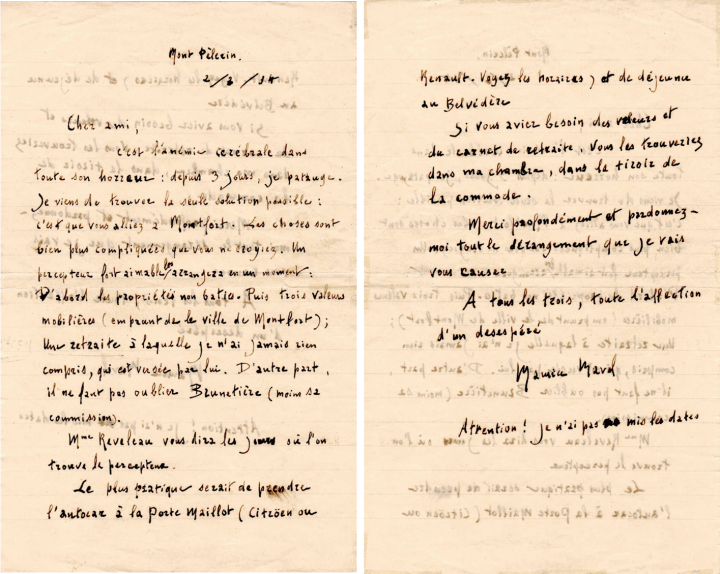 Mont Pèlerin.
2/3/34
Cher ami,
c'est l'anémie cérébrale dans
toute son horreur : depuis 3 jours, je patauge.
Je viens de trouver la seule solution possible :
c'est que vous alliez à Montfort. Les choses sont
bien plus compliquées que vous ne croyiez. Un
percepteur fort aimable les arrangera en un moment :
D'abord les propriétés non baties. Puis trois valeurs
mobilières (emprunt de le ville de Montfort) ;
Une retraite à laquelle je n'ai jamais rien
compris, qui est versée par lui. D'autre part,
il ne faut pas oublier Brunetière (moins sa
commission).
Mme Reveleau vous dira les jours où l'on
trouve le percepteur.
Le plus pratique serait de prendre
l'autocar à la Porte Maillot (Citröen ou
Renault. Voyez les horaires) et de déjeuner
au Belvédère
Si vous aviez besoin des valeurs et
du carnet de retraite, vous les trouveriez
dans ma chambre, dans le tiroir de
la commode.
Merci profondément et pardonnez-
moi tout le dérangement que je vais
vous causer
A tous les trois, toute l'affection
d'un desespéré
Maurice Ravel
Attention ! je n'ai pas mis les dates